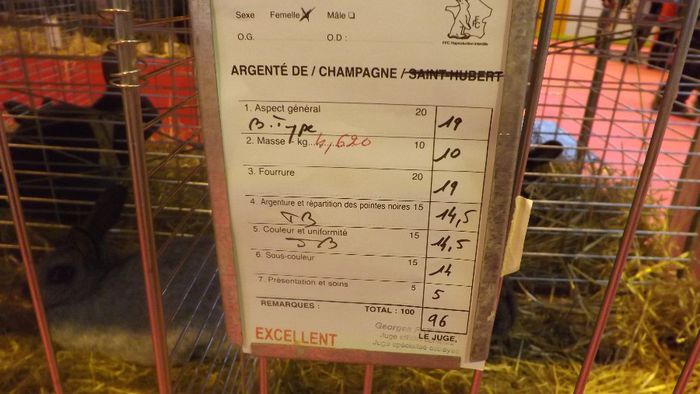 Sexe Femelle ☒ Mâle ☐
O.G. O.D :
FFC Reproduction interdite
ARGENTÉ DE / CHAMPAGNE / SAINT-HUBERT
1. Aspect général 20 19
B. Type
2. Masse - kg... 4,620 10 10
3. Fourrure 20 19
4. Argenture et répartition des pointes noires 15 14,5
TB
5. Couleur et uniformité 15 14,5
TB
6. Sous-couleur 15 14
7. Présentation et soins 5 5
REMARQUES : TOTAL : 100 96
EXCELLENT
Georges
LE JUGE,
Juge
Juge spécialisé